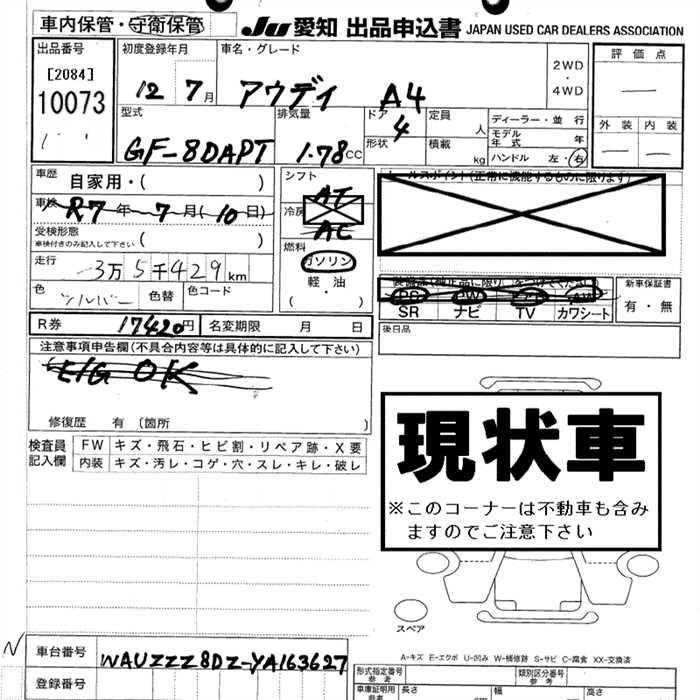 車内保管・守衛保管
JU 愛知 出品申込書 JAPAN USED CAR DEALERS ASSOCIATION
出品番号
[2084]
10073
初度登録年月
12 7月
車名・グレード
アウディ A4
2WD
・
4WD
評価点
外装 内装
型式
GF-8DAPT
排気量
1.78cc
ドア
4
形状
定員
人
積載
kg
ディーラー・並行
モデル年式 年
ハンドル 左・右
車歴
自家用・( )
車検 R7年7月(10日)
受検形態
車検付きのみ記入して下さい ( )
走行
3万5千429km
色 シルバー 色替 色コード
シフト
AT
冷房
AC
燃料
ガソリン
・
軽油
( )
セールスポイント(正常に機能するものに限ります)
PS PW AW
SR ナビ TV カワシート
新車保証書
有・無
後日品
R券 17420円 名変期限 月 日
注意事項申告欄(不具合内容等は具体的に記入して下さい)
E/G OK
修復歴 有(箇所 )
検査員記入欄
FW キズ・飛石・ヒビ割・リペア跡・X要
内装 キズ・汚レ・コゲ・穴・スレ・キレ・破レ
現状車
※このコーナーは不動車も含み
ますのでご注意下さい
スペア
A-キズ E-エクボ U-凹み W-補修跡 S-サビ C-腐食 XX-交換済
N
車台番号 WAUZZZ8DZ-YA163627
登録番号
形式指定番号
参考
類別区分番号
参考
車庫証明用
参考
長さ
幅
高さ